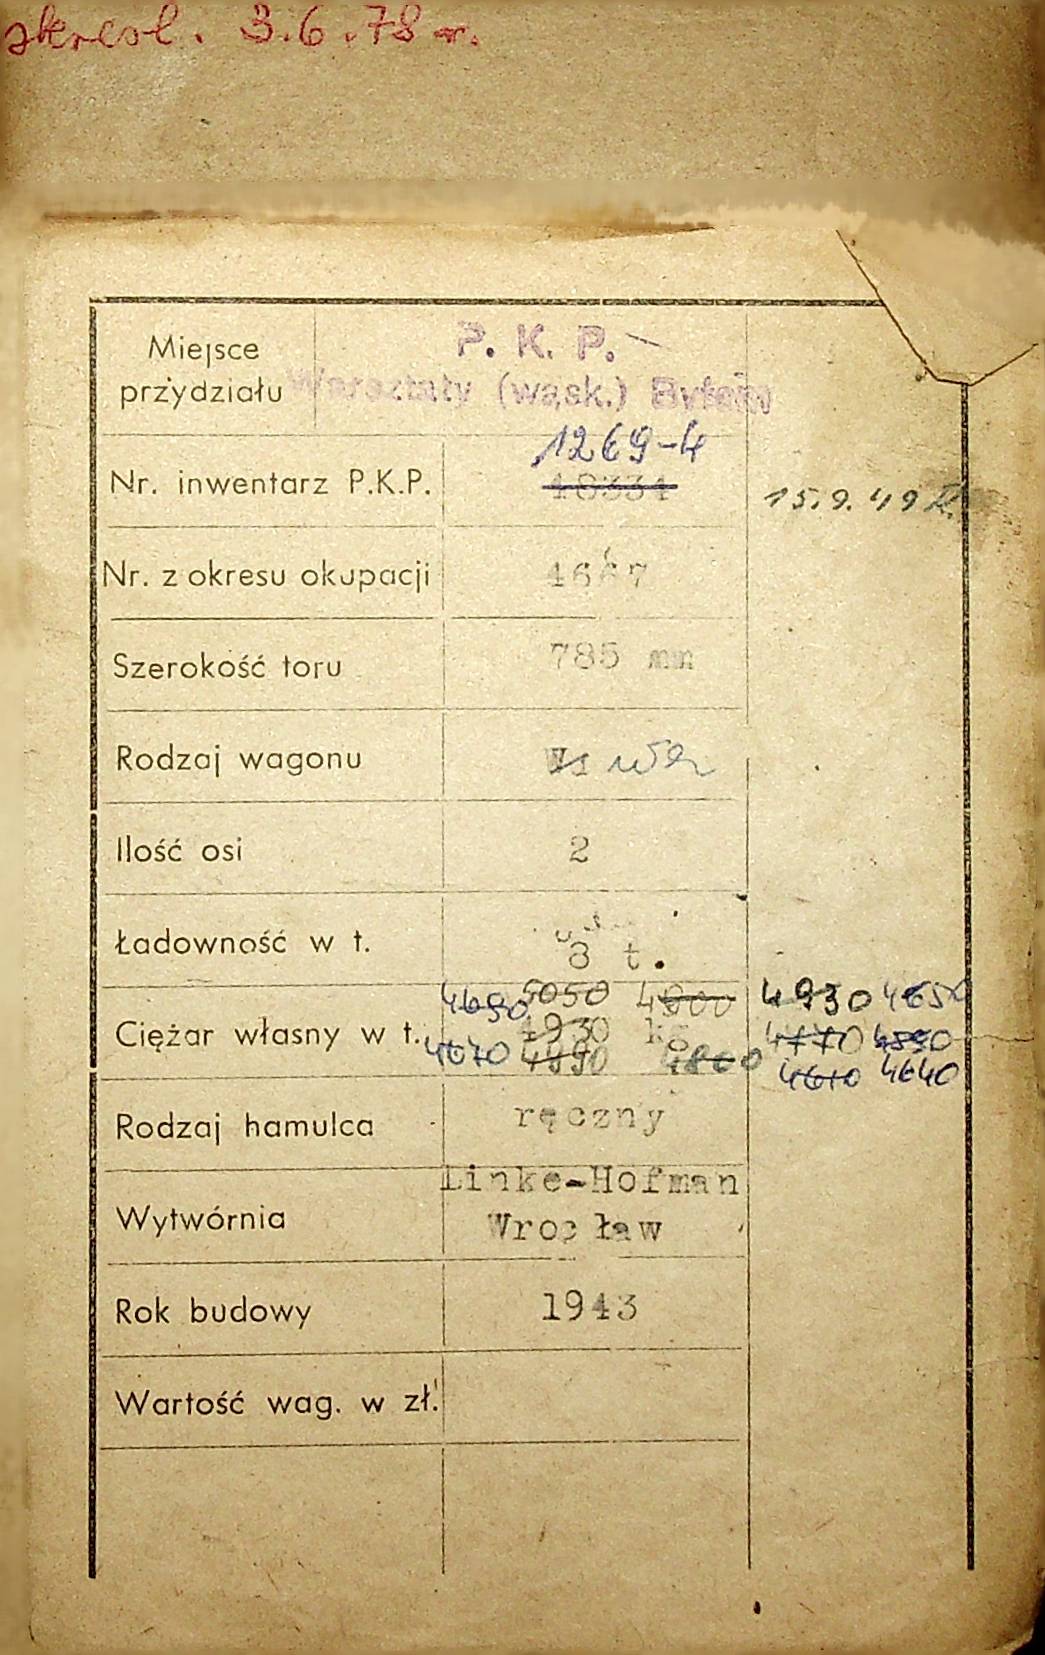 skreśl. 3.6.78 r.
Miejsce przydziału
P. K. P.
Warsztaty (wąsk.) Bytom
Nr. inwentarz P.K.P.
1269-4
18334
15.9.49
Nr. z okresu okupacji 4667
Szerokość toru 785 mm
Rodzaj wagonu
Ilość osi 2
Ładowność w t. 8 t.
Ciężar własny w t.
4690 5050 4900 4930
4930 kg 4770 4890
4670 4990 4860 4610 4640
Rodzaj hamulca ręczny
Wytwórnia
Linke-Hofman
Wrocław
Rok budowy 1943
Wartość wag. w zł.